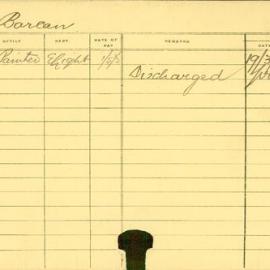 Borcan
OFFICE DEPT. RATE OF PAY REMARKS DATE
Painter E. Light
Discharged 19/3